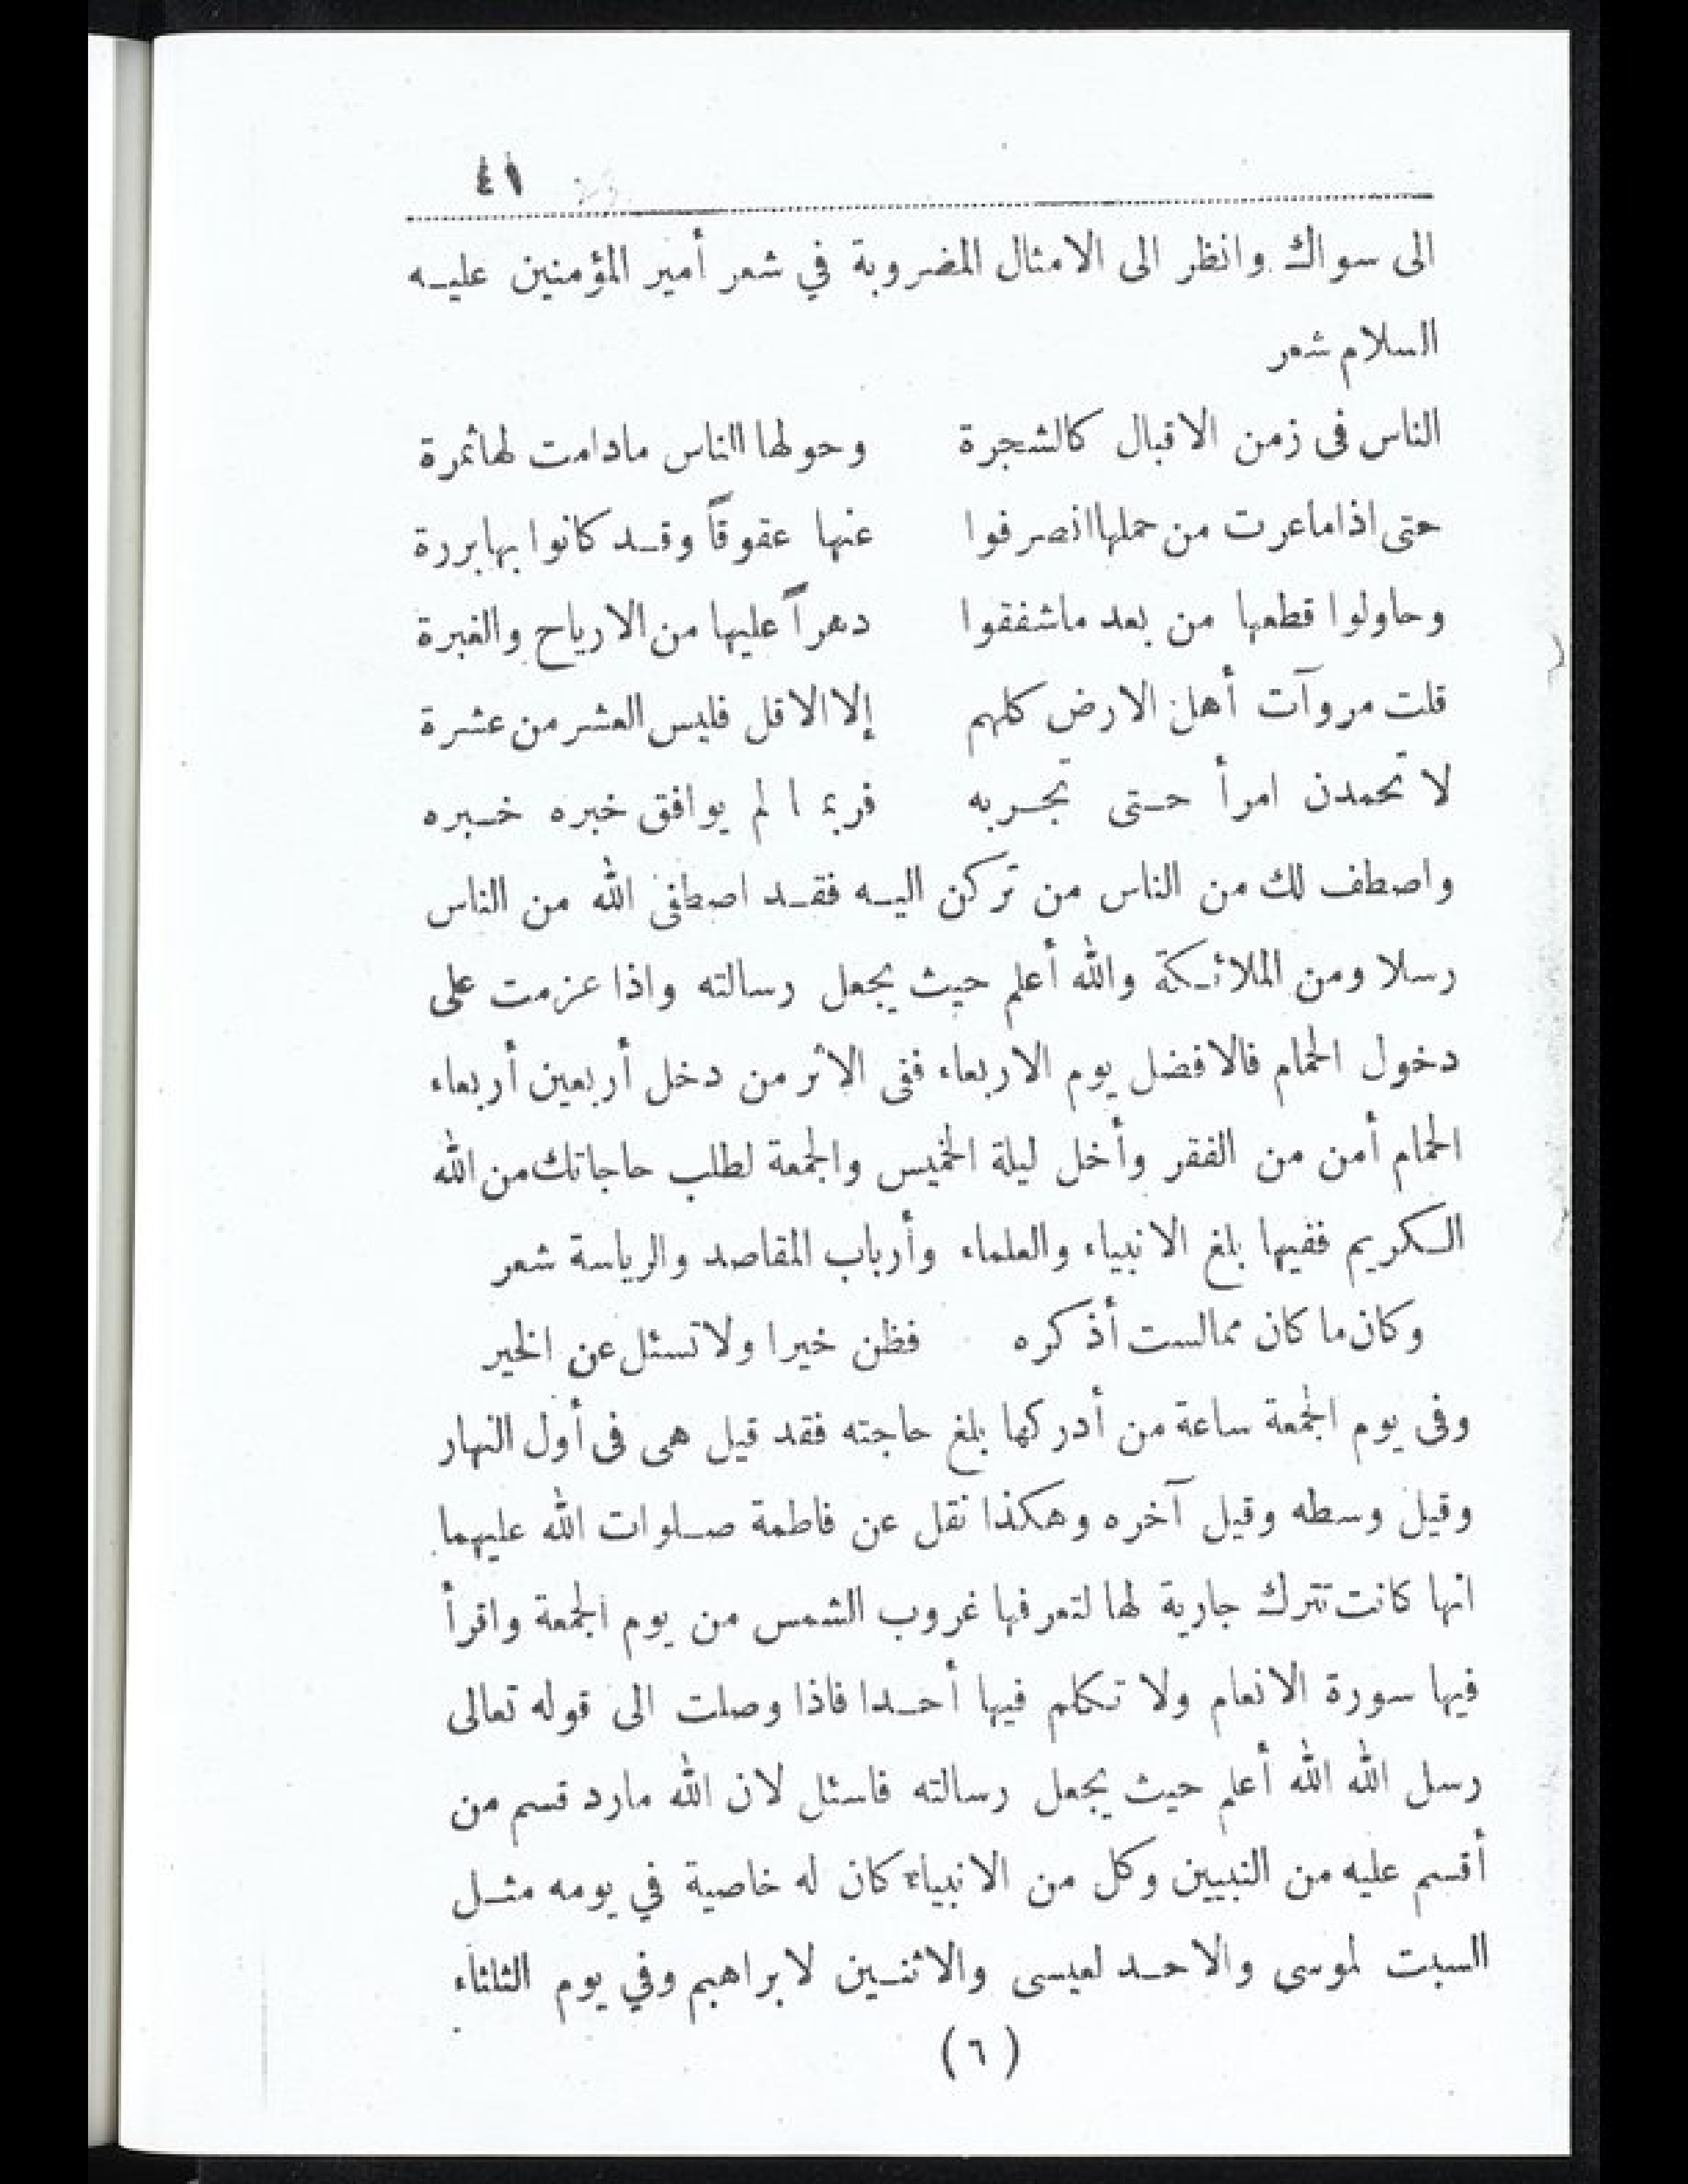 ٤١
الى سواك وانظر الى الامثال المضروبة في شعر أمير المؤمنين عليـه
السلام شعر
الناس فى زمن الاقبال كالشجرة وحولها الناس مادامت لها ثمرة
حتى اذا ماعرت من حملها انصرفوا عنها عقوقاً وقـد كانوا بها بررة
وحاولوا قطعها من بعد ماشفقوا دهراً عليها من الارياح والغبرة
قلت مروآت أهل الارض كلهم إلا الاقل فليس العشر من عشرة
لا تحمدن امرأ حـتى تجـربه فربما لم يوافق خبره خـبره
واصطف لك من الناس من تركن اليـه فقـد اصطفى الله من الناس
رسلا ومن الملائـكة والله أعلم حيث يجعل رسالته واذا عزمت على
دخول الحمام فالافضل يوم الاربعاء ففى الاثر من دخل أربعين أربعاء
الحمام أمن من الفقر وأخل ليلة الخميس والجمعة لطلب حاجاتك من الله
الـكريم ففيها بلغ الانبياء والعلماء وأرباب المقاصد والرياسة شعر
وكان ما كان ممالست أذكره فظن خيرا ولا تسئل عن الخير
وفى يوم الجمعة ساعة من أدركها بلغ حاجته فقد قيل هى فى أول النهار
وقيل وسطه وقيل آخره وهكذا نقل عن فاطمة صـلوات الله عليهما
انها كانت تترك جارية لها لتعرفها غروب الشمس من يوم الجمعة واقرأ
فيها سورة الانعام ولا تـكلم فيها أحـدا فاذا وصلت الى قوله تعالى
رسل الله الله أعلم حيث يجعل رسالته فاسئل لان الله مارد قسم من
أقسم عليه من النبيين وكل من الانبياء كان له خاصية في يومه مثـل
السبت لموسى والاحـد لعيسى والاثنـين لابراهيم وفي يوم الثلثاء
(٦)